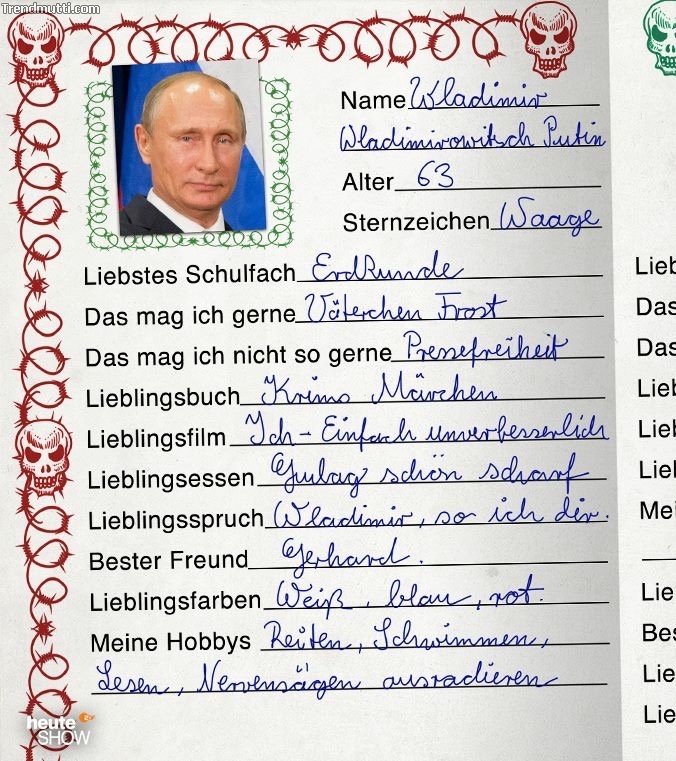 Trendmutti.com
Name Wladimir
Wladimirowitsch Putin
Alter 63
Sternzeichen Waage
Liebstes Schulfach Erdkunde
Das mag ich gerne Väterchen Frost
Das mag ich nicht so gerne Pressefreiheit
Lieblingsbuch Krims Märchen
Lieblingsfilm Ich - Einfach unverbesserlich
Lieblingsessen Gulag schön scharf
Lieblingsspruch Wladimir, so ich dir.
Bester Freund Gerhard.
Lieblingsfarben Weiß, blau, rot.
Meine Hobbys Reiten, Schwimmen,
Lesen, Nervensägen ausradieren
heute
SHOW
Lieb
Das
Das
Lieb
Lieb
Liel
Mei
Lie
Bes
Lie
Lie